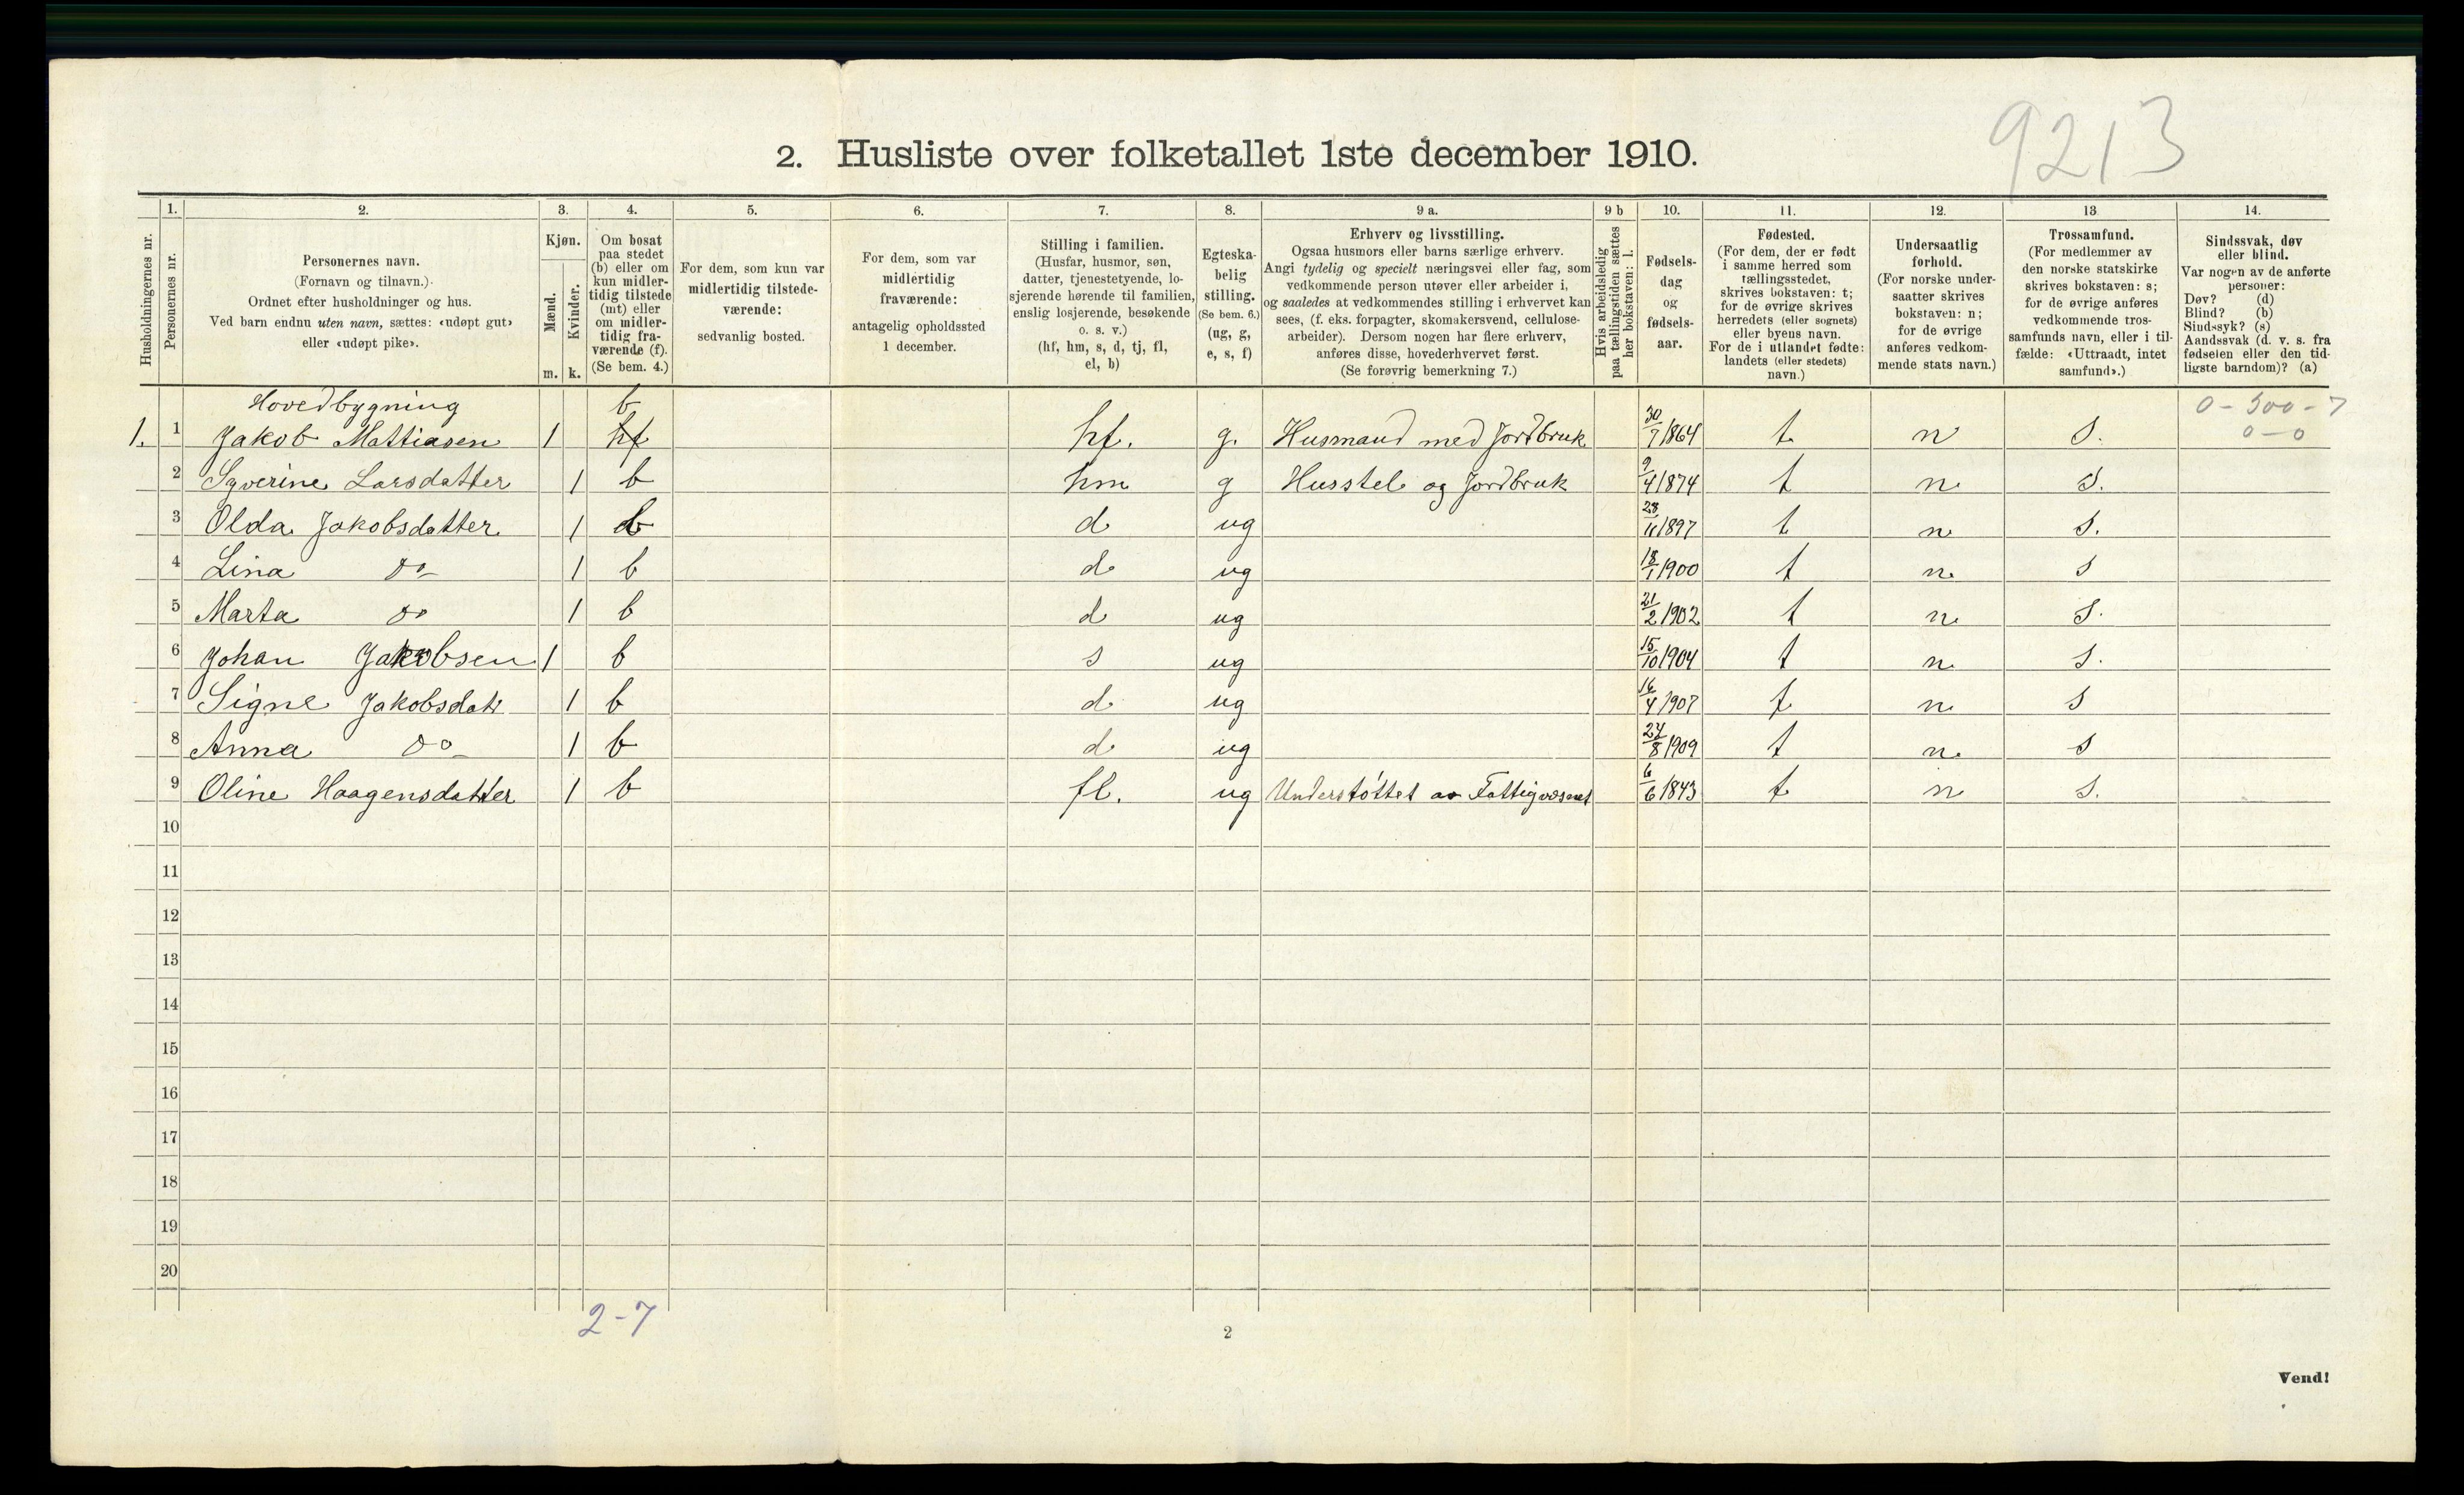 9213
2. Husliste over folketallet 1ste december 1910.
1. 2. 3. 4. 5. 6. 7. 8. 9 a. 9 b 10. 11. 12. 13 14.
Husholdningernes nr.
Personernes nr.
Personernes navn.
(Fornavn og tilnavn.)
Ordnet efter husholdninger og hus.
Ved barn endnu uten navn, sættes: «udøpt gut»
eller «udøpt pike».
Kjøn.
Mænd.
Kvinder.
m. k.
Om bosat
paa stedet
(b) eller om
kun midler-
tidig tilstede
(mt) eller
om midler-
tidig fra-
værende (f).
(Se bem. 4.)
For dem, som kun var
midlertidig tilstede-
værende:
sedvanlig bosted.
For dem, som var
midlertidig
fraværende:
antagelig opholdssted
1 december.
Stilling i familien.
(Husfar, husmor, søn,
datter, tjenestetyende, lo-
sjerende hørende til familien,
enslig losjerende, besøkende
o. s. v.)
(hf, hm, s, d, tj, fl,
el, b)
Egteska-
belig
stilling.
(Se bem. 6.)
(ug, g,
e, s, f)
Erhverv og livsstilling.
Ogsaa husmors eller barns særlige erhverv.
Angi tydelig og specielt næringsvei eller fag, som
vedkommende person utøver eller arbeider i,
og saaledes at vedkommendes stilling i erhvervet kan
sees, (f. eks. forpagter, skomakersvend, cellulose-
arbeider). Dersom nogen har flere erhverv,
anføres disse, hovederhvervet først.
(Se forøvrig bemerkning 7.)
Hvis arbeidsledig
paa tællingstiden sættes
her bokstaven: l.
Fødsels-
dag
og
fødsels-
aar.
Fødested.
(For dem, der er født
i samme herred som
tællingsstedet,
skrives bokstaven: t;
for de øvrige skrives
herredets (eller sognets)
eller byens navn.
For de i utlandet fødte:
landets (eller stedets)
navn.)
Undersaatlig
forhold.
(For norske under-
saatter skrives
bokstaven: n;
for de øvrige
anføres vedkom-
mende stats navn.)
Trossamfund.
(For medlemmer av
den norske statskirke
skrives bokstaven: s;
for de øvrige anføres
vedkommende tros-
samfunds navn, eller i til-
fælde: «Uttraadt, intet
samfund».)
Sindssvak, døv
eller blind.
Var nogen av de anførte
personer:
Døv? (d)
Blind? (b)
Sindssyk? (s)
Aandssvak (d. v. s. fra
fødselen eller den tid-
ligste barndom)? (a)
Hovedbygning b 0 - 300 - 7
1. 1 Jakob Mattiasen 1 hf hf. g. Husmand med Jordbruk 30/7 1864 t n s. 0-0
2 Syverine Larsdatter 1 b hm g Husstel og Jordbruk 9/4 1874 t n s.
3 Olda Jakobsdatter 1 b d ug 28/11 1897 t n s.
4 Lina do- 1 b d ug 18/1 1900 t n s
5 Marta do 1 b d ug 21/2 1902 t n s.
6 Johan Jakobsen 1 b s ug 15/10 1904 t n s.
7 Signe Jakobsdat 1 b d ug 16/4 1907 t n s
8 Anna do- 1 b d ug 27/8 1909 t n s
9 Oline Haagensdatter 1 b fl. ug Understøttet av Fattigvæsnet 6/6 1843 t n s.
10
11
12
13
14
15
16
17
18
19
20
2-7
2
Vend!